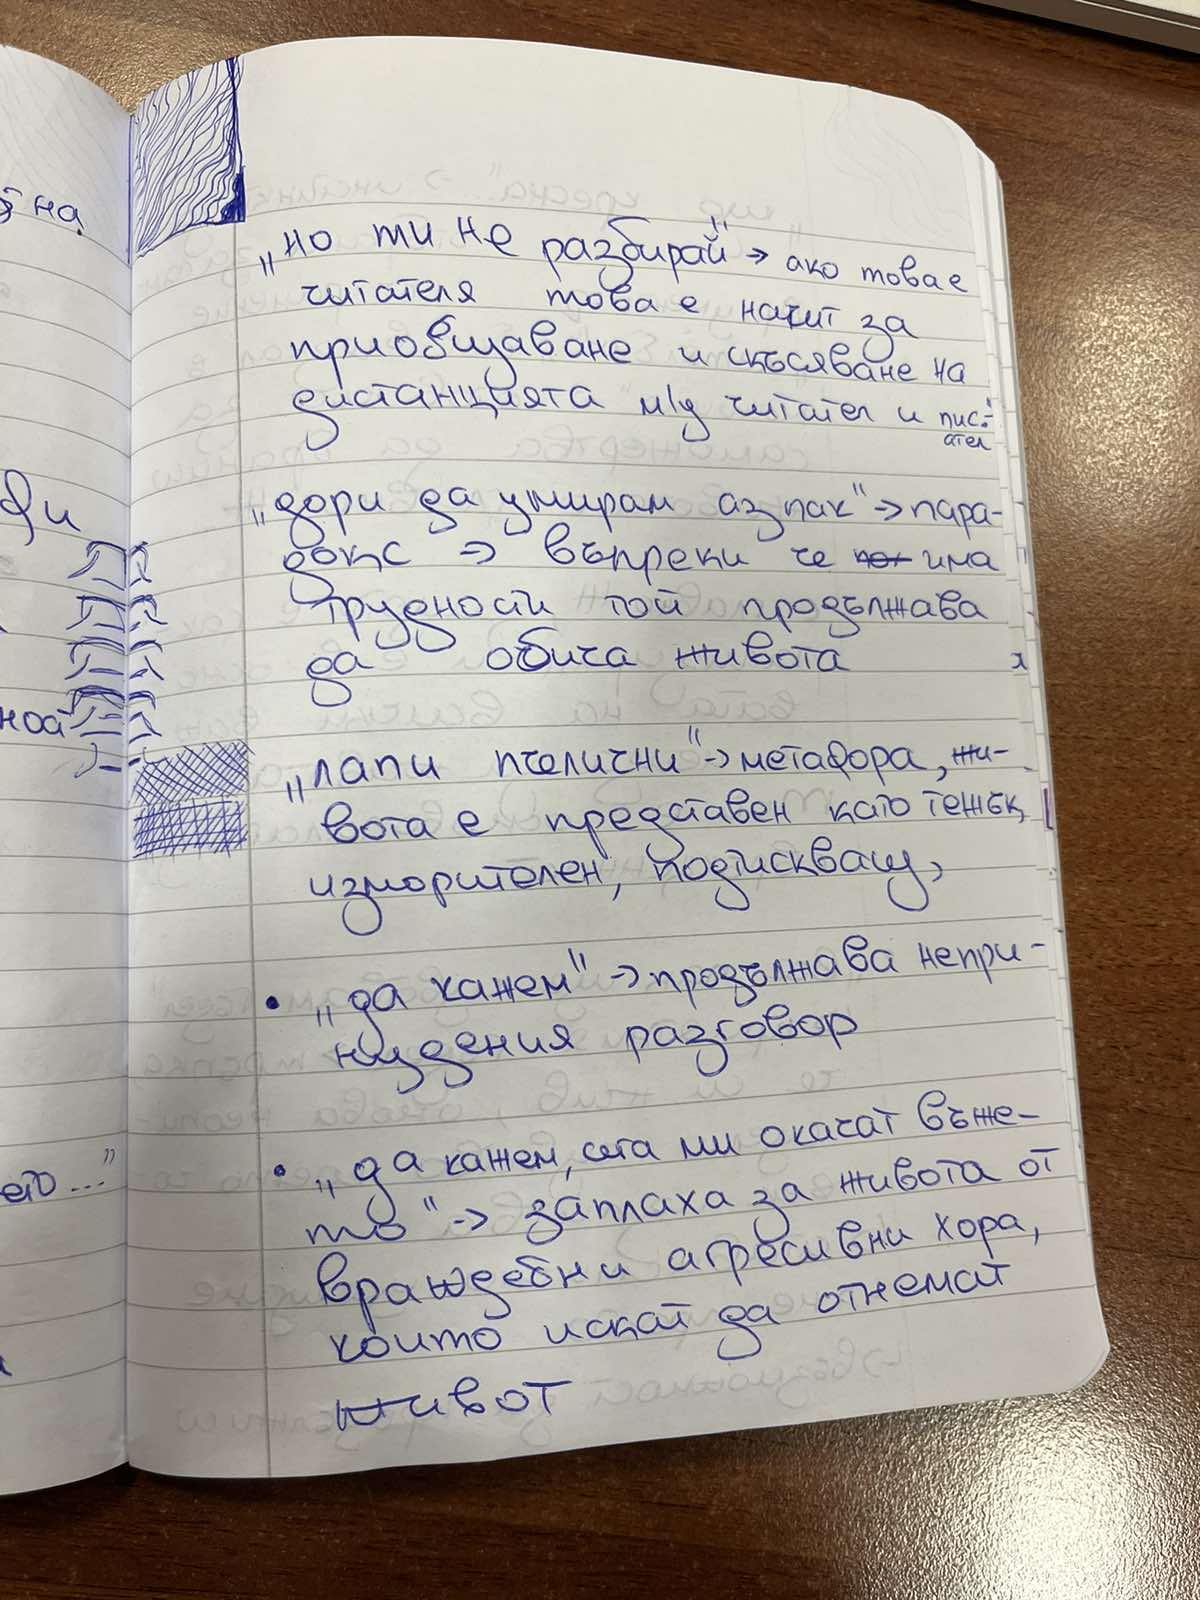 „но ти не разбирай" → ако това е
читателя това е начит за
приобщаване и скъсяване на
дистанцията м/д читател и пис.
ател
„дори да умирам аз пак" → пара-
докс → въпреки че има
трудности той продължава
да обича живота
„лапи пчелични" → метафора, жи-
вота е представен като тежък,
изморителен, подтискващ,
• „да кажем" → продължава непри-
нудения разговор
• „да кажем, сега ми окачат въже-
то" → заплаха за живота от
враждебни агресивни хора,
които искат да отнемат
живот